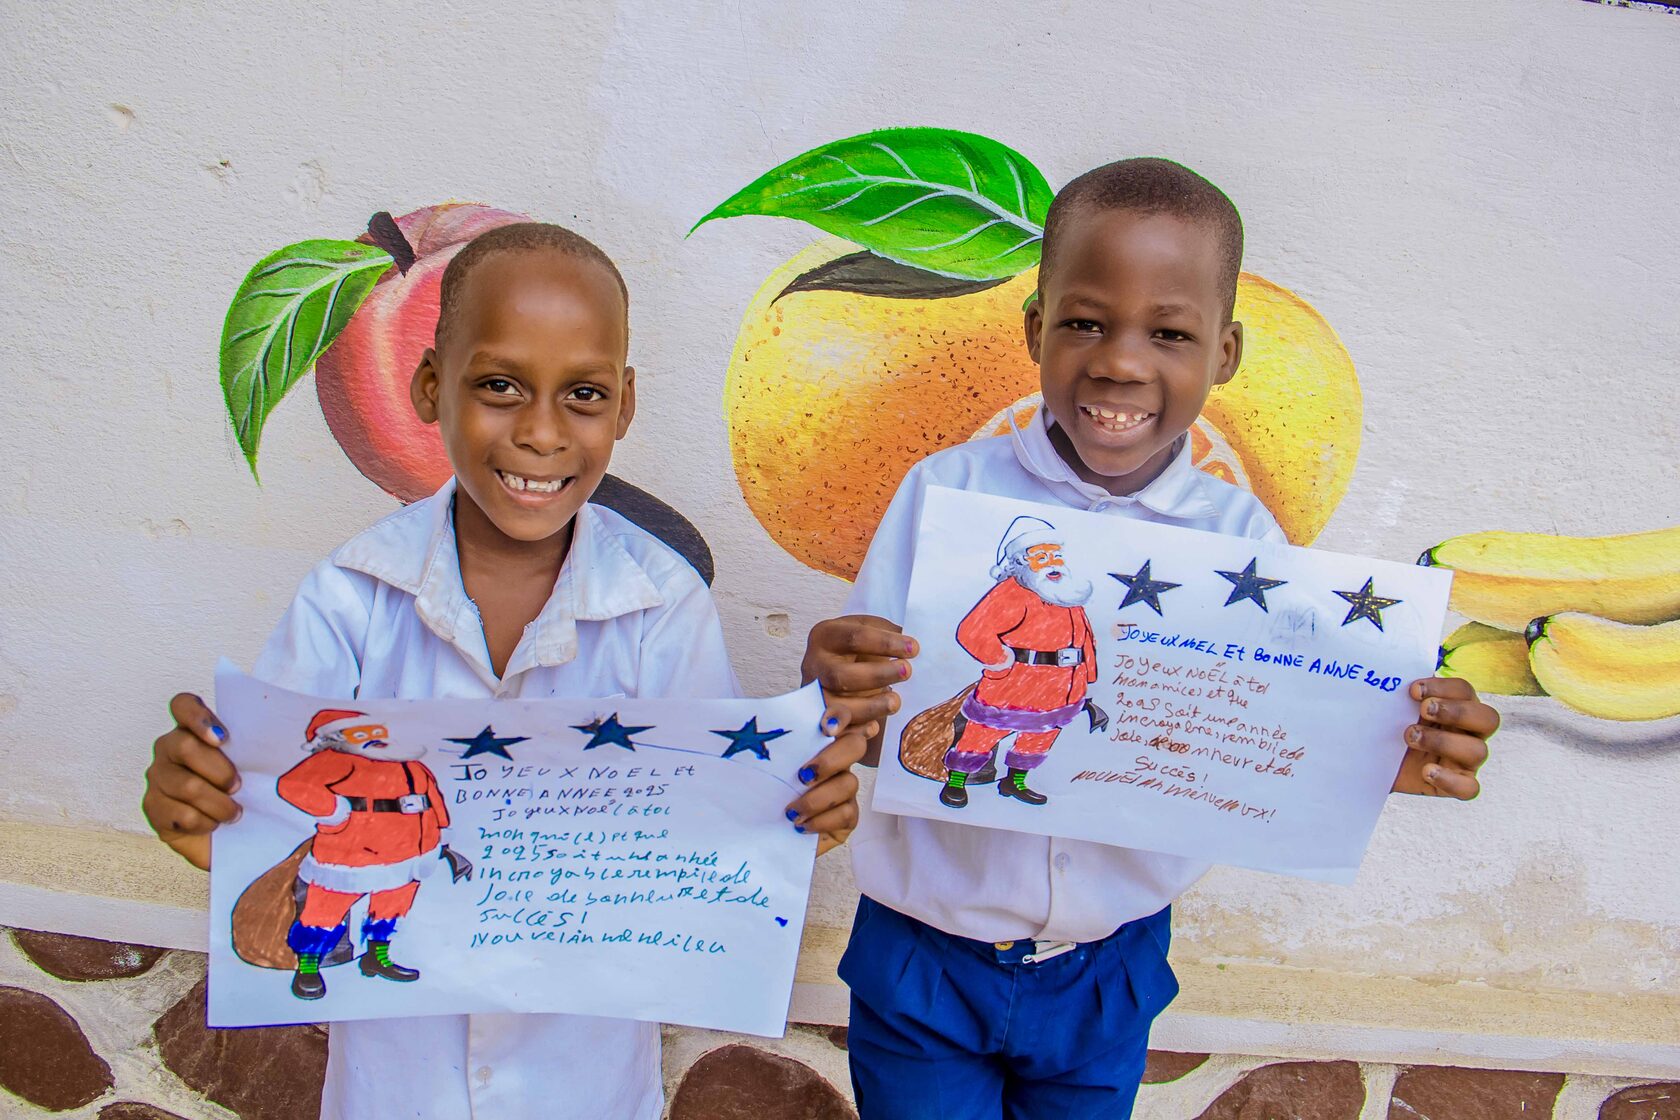 JOYEUX NOEL Et
BONNE ANNEE 2025
Joyeux Noël à toi
mon ami(e) et que
2025 soit une année
incroyable remplie de
Joie de bonheur et de
succès!
Nouvel An
JOYEUX NOEL Et BONNE ANNE 2025
JoyEux NOËL à toi
mon ami(e) et que
2025 soit une année
incroyable, remplie de
joie, bonheur et de
Succès!
NOUVEL AN MERVEILLEUX!